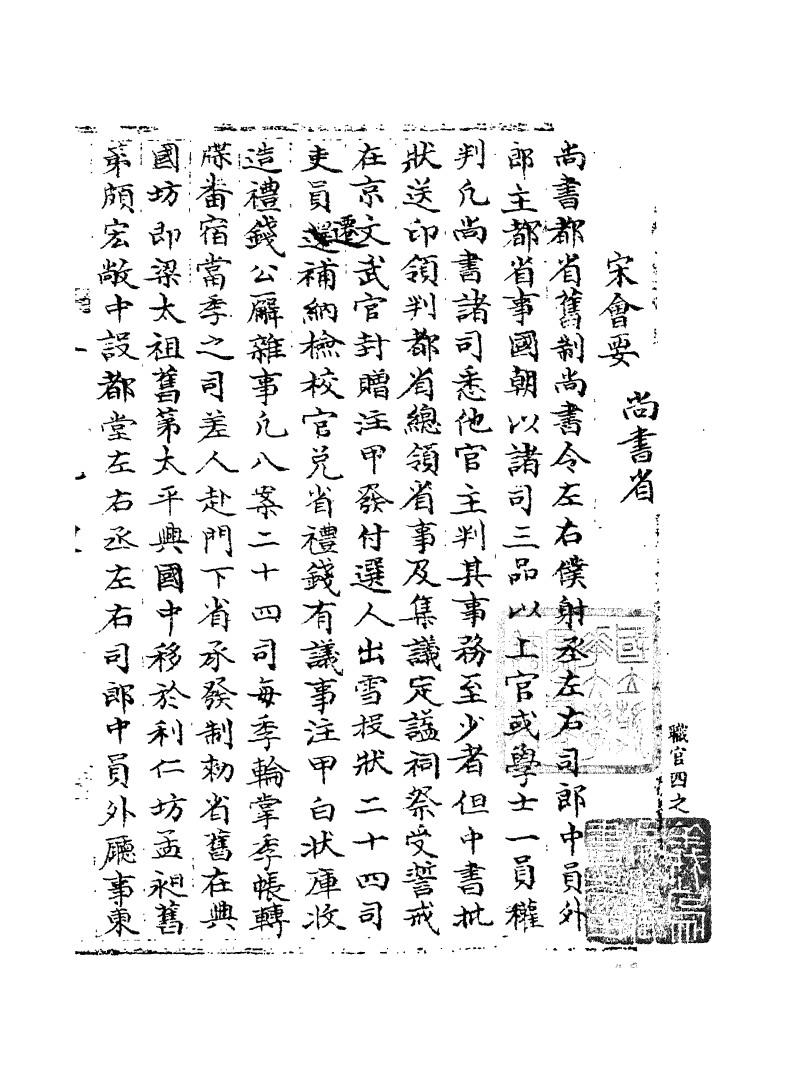 職官四之一
尚書省
宋會要
尚書都省舊制尚書令左右僕射丞左右司郎中員外
郎主都省事國朝以諸司三品以上官或學士一員權
判凢尚書諸司悉他官主判其事務至少者但中書批
狀送印領判都省總領省事及集議定謚祠祭受誓戒
在京文武官封贈注甲發付選人出雪投狀二十四司
吏員遷補納檢校官兌省禮錢有議事注甲白状庫收
造禮錢公廨雜事凢八案二十四司每季輪掌季帳轉
牒畨宿當季之司差人赴門下省承發制勑省舊在興
國坊即梁太祖舊苐太平興國中移於利仁坊孟昶舊
苐頗宏敞中設都堂左右丞左右司郎中員外廳事東